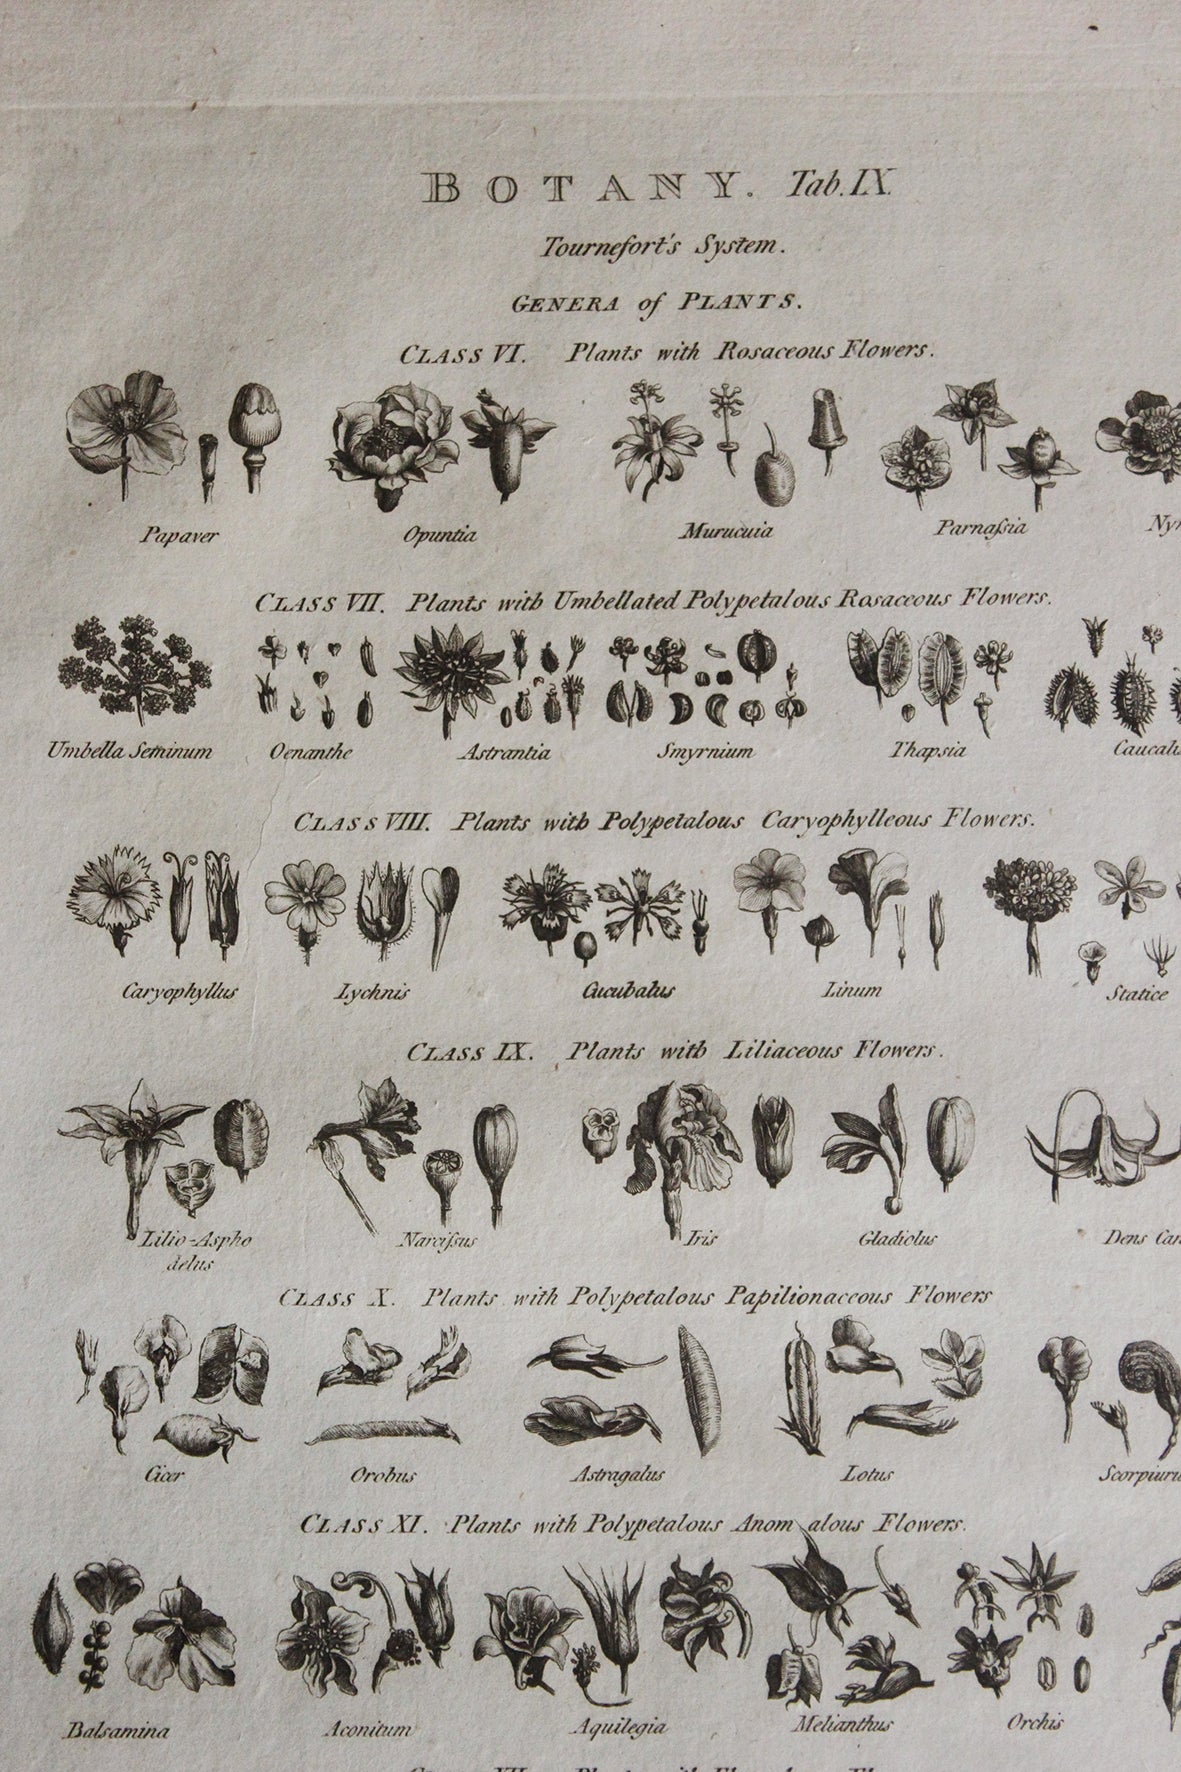 BOTANY. Tab. IX.
Tournefort's System.
GENERA of PLANTS.
CLASS VI. Plants with Rosaceous Flowers.
Papaver Opuntia Murucuia Parnaſsia
CLASS VII. Plants with Umbellated Polypetalous Rosaceous Flowers.
Umbella Seminum Oenanthe Astrantia Smyrnium Thapsia Caucali
CLASS VIII. Plants with Polypetalous Caryophylleous Flowers.
Caryophyllus Lychnis Cucubalus Linum Statice
CLASS IX. Plants with Liliaceous Flowers.
Lilio-Aspho Narciſsus Iris Gladiolus Dens Can
delus
CLASS X. Plants with Polypetalous Papilionaceous Flowers
Cicer Orobus Astragalus Lotus Scorpiuru
CLASS XI. Plants with Polypetalous Anom alous Flowers.
Balsamina Aconitum Aquilegia Melianthus Orchis